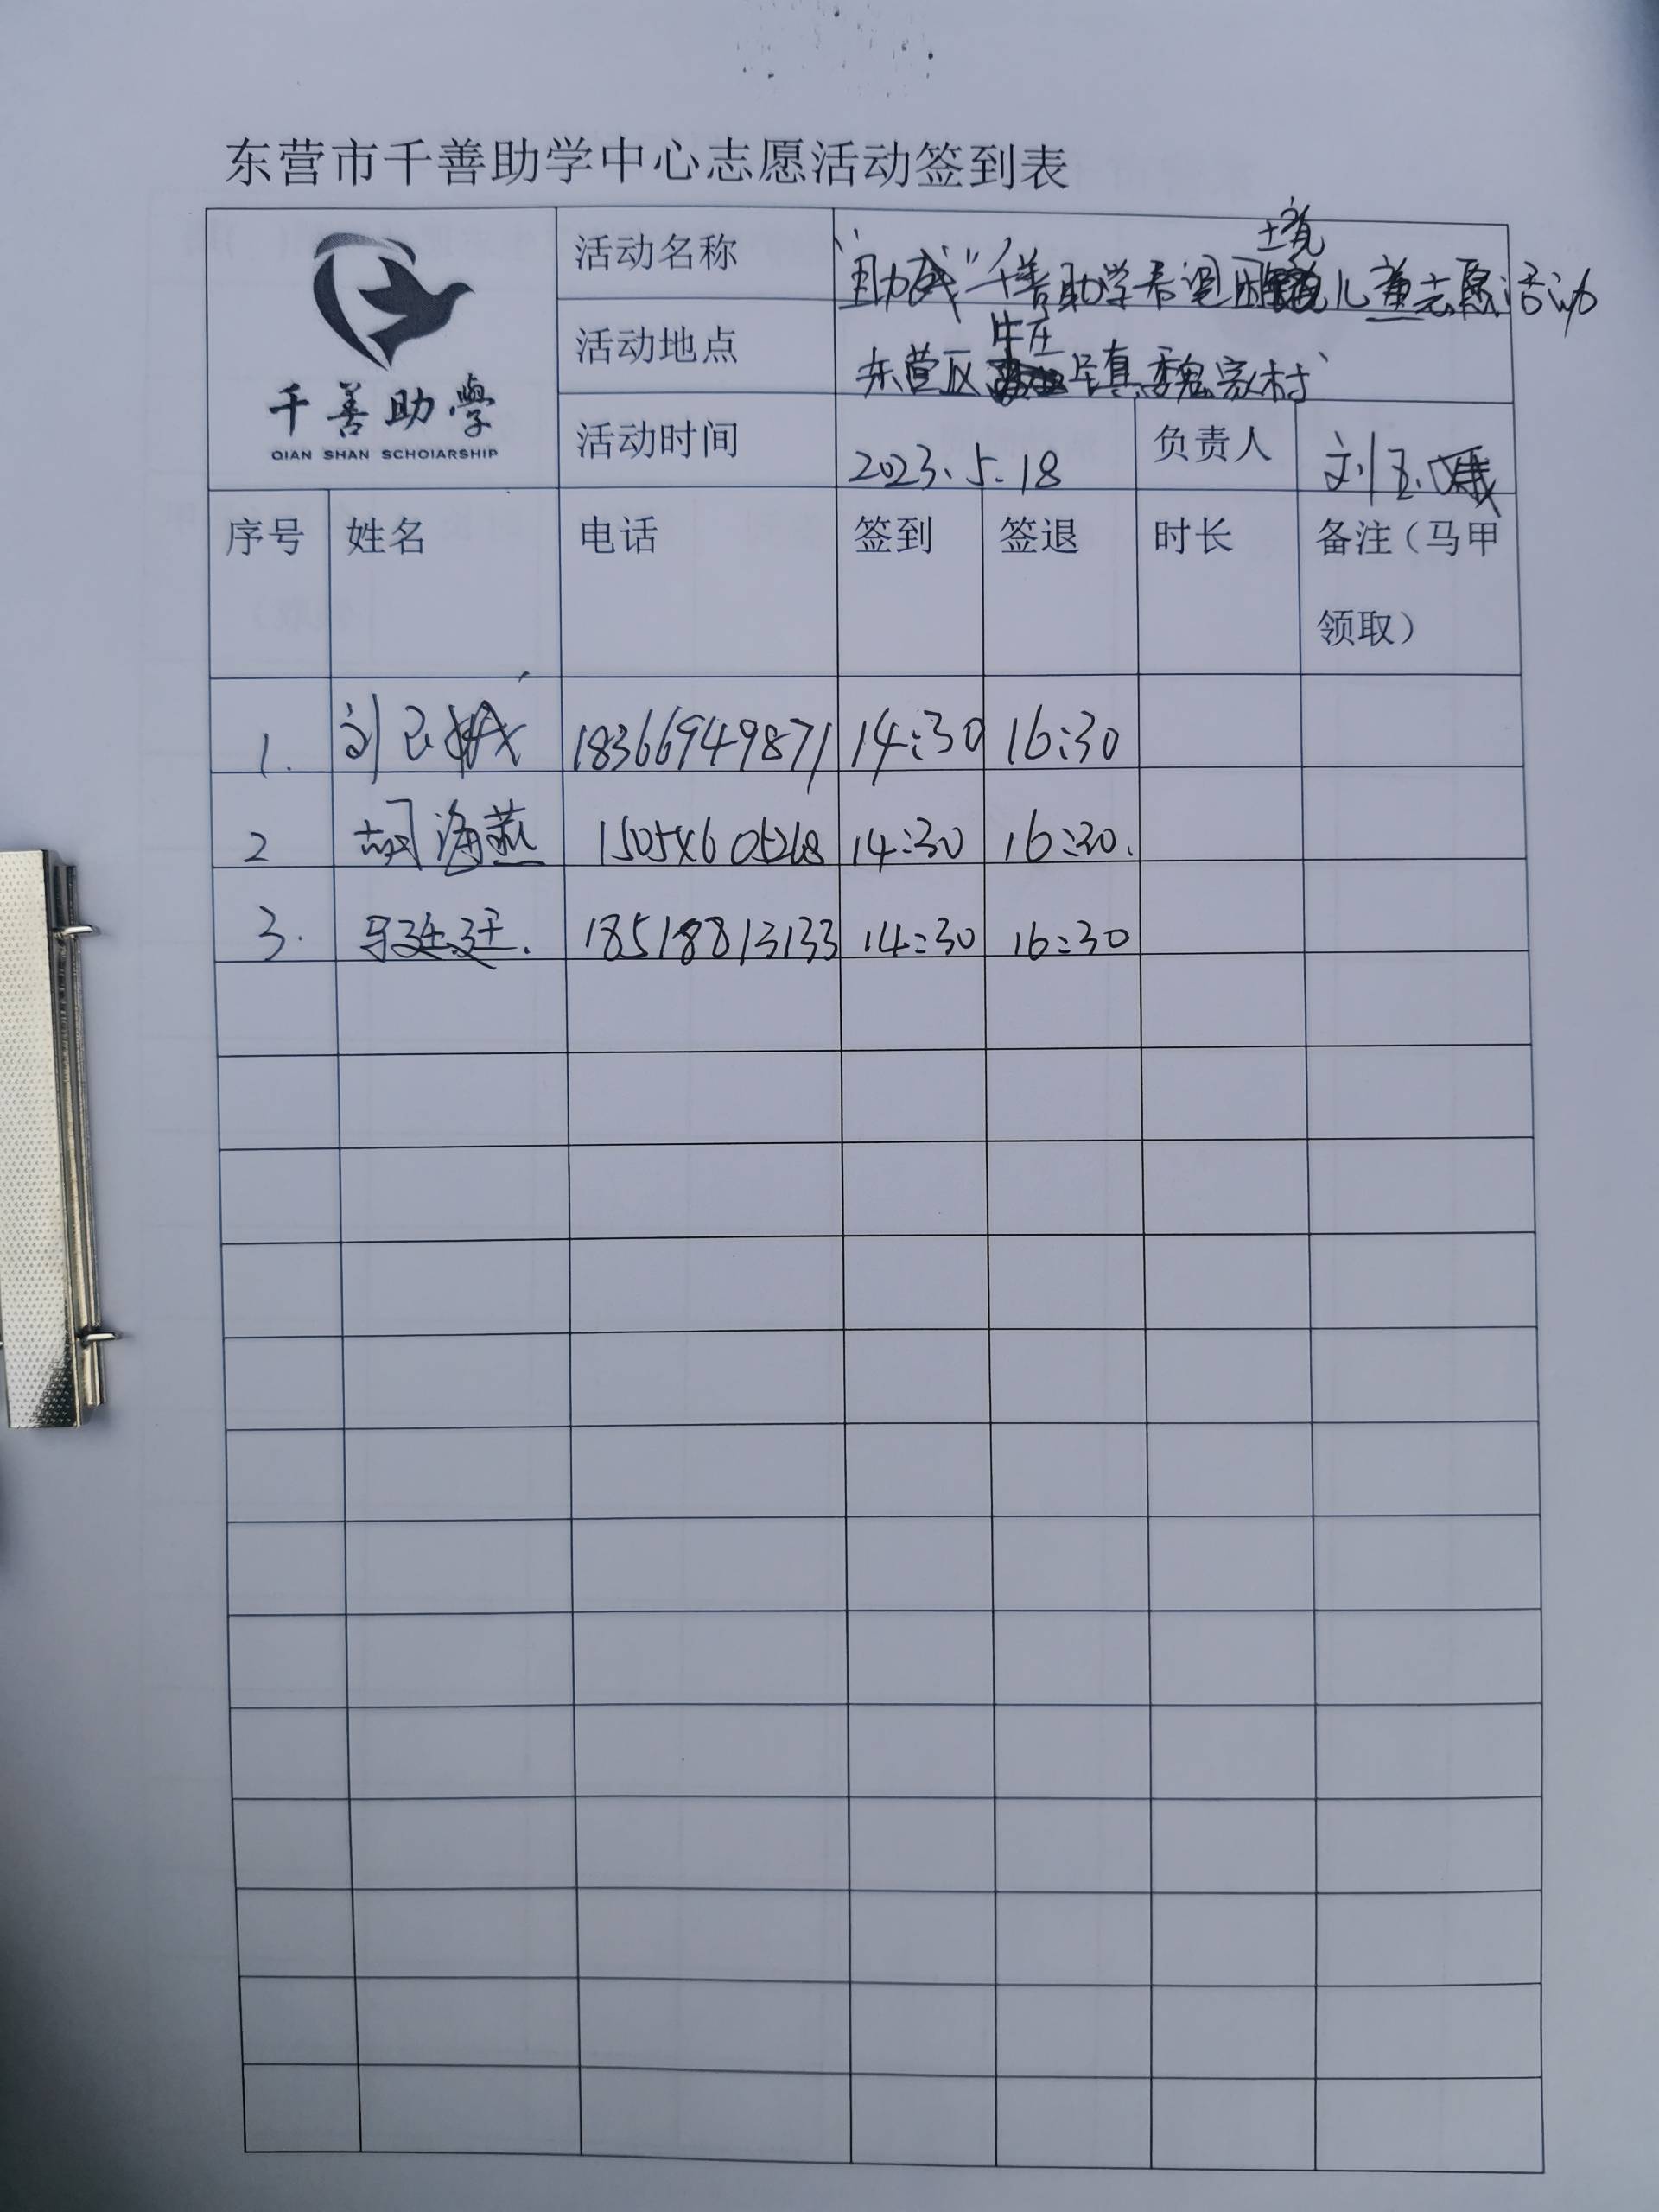 东营市千善助学中心志愿活动签到表
千善助學
QIAN SHAN SCHOIARSHIP
活动名称
境
千善助学希望困儿童志愿活动
活动地点
牛庄
东营区 镇魏家村
活动时间 2023.5.18 负责人 刘玉
序号 姓名 电话 签到 签退 时长 备注（马甲
领取）
1. 刘玉 18366949871 14:30 16:30
2 胡海燕 14:30 16:30.
3. 18518813133 14:30 16:30